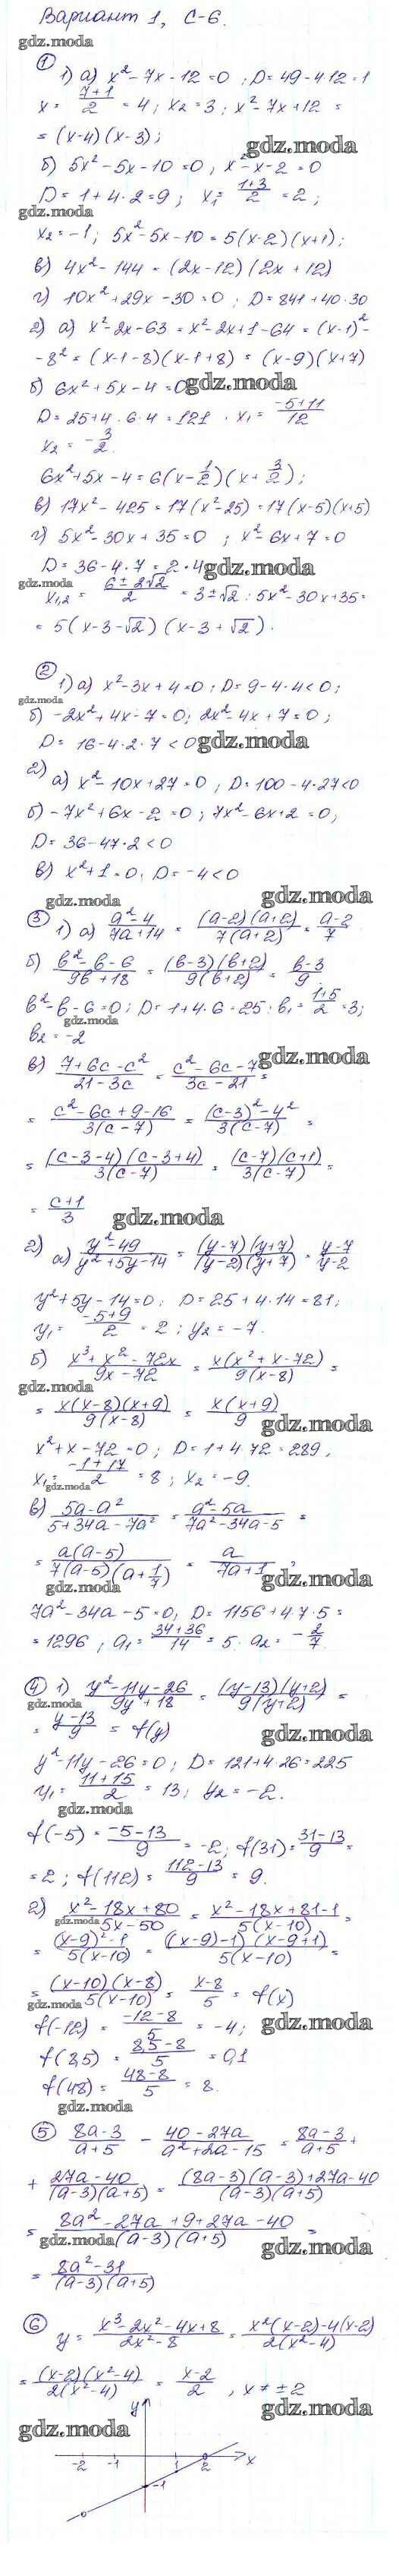 Вариант 1, С-6.
gdz.moda
① 1) а) x² - 7x - 12 = 0 ; D = 49 - 4·12 = 1
x = (7+1)/2 = 4; x₂ = 3 ; x² - 7x + 12 =
= (x-4)(x-3);
gdz.moda
б) 5x² - 5x - 10 = 0 ; x² - x - 2 = 0
D = 1 + 4·2 = 9 ; x₁ = (1+3)/2 = 2 ;
gdz.moda
x₂ = -1; 5x² - 5x - 10 = 5(x-2)(x+1);
в) 4x² - 144 = (2x-12)(2x+12)
г) 10x² + 29x - 30 = 0 ; D = 841 + 40·30
2) а) x² - 2x - 63 = x² - 2x + 1 - 64 = (x-1)² -
- 8² = (x-1-8)(x-1+8) = (x-9)(x+7)
б) 6x² + 5x - 4 = 0
gdz.moda
D = 25 + 4·6·4 = 121 · x₁ = (-5+11)/12
x₂ = -3/2.
6x² + 5x - 4 = 6(x - 1/2)(x + 3/2);
в) 17x² - 425 = 17(x² - 25) = 17(x-5)(x+5)
г) 5x² - 30x + 35 = 0 ; x² - 6x + 7 = 0
D = 36 - 4·7 = 2·4
gdz.moda
gdz.moda
x₁,₂ = (6 ± 2√2)/2 = 3 ± √2 ; 5x² - 30x + 35 =
= 5(x - 3 - √2)(x - 3 + √2).
② 1) а) x² - 3x + 4 = 0 ; D = 9 - 4·4 < 0 ;
gdz.moda
б) -2x² + 4x - 7 = 0; 2x² - 4x + 7 = 0 ;
D = 16 - 4·2·7 < 0
gdz.moda
2)
а) x² - 10x + 27 = 0 ; D = 100 - 4·27 < 0
б) -7x² + 6x - 2 = 0 ; 7x² - 6x + 2 = 0;
D = 36 - 4·7·2 < 0
в) x² + 1 = 0; D = -4 < 0
gdz.moda
gdz.moda
③ 1) а) (a²-4)/(7a+14) = (a-2)(a+2)/7(a+2) = (a-2)/7
б) (b²-b-6)/(9b+18) = (b-3)(b+2)/9(b+2) = (b-3)/9.
b² - b - 6 = 0 ; D = 1 + 4·6 = 25 ; b₁ = (1+5)/2 = 3;
gdz.moda
b₂ = -2
в) (7+6c-c²)/(21-3c) = (c²-6c-7)/(3c-21) =
gdz.moda
= (c²-6c+9-16)/3(c-7) = ((c-3)²-4²)/3(c-7) =
= (c-3-4)(c-3+4)/3(c-7) = (c-7)(c+1)/3(c-7) =
= (c+1)/3
gdz.moda
2) а) (y²-49)/(y²+5y-14) = (y-7)(y+7)/(y-2)(y+7) = (y-7)/(y-2)
y² + 5y - 14 = 0 ; D = 25 + 4·14 = 81;
y₁ = (-5+9)/2 = 2 ; y₂ = -7.
б) (x³+x²-72x)/(9x-72) = x(x²+x-72)/9(x-8) =
gdz.moda
= x(x-8)(x+9)/9(x-8) = x(x+9)/9
gdz.moda
x² + x - 72 = 0 ; D = 1 + 4·72 = 289,
x₁ = (-1+17)/2 = 8 ; x₂ = -9.
gdz.moda
в) (5a-a²)/(5+34a-7a²) = (a²-5a)/(7a²-34a-5) =
= a(a-5)/7(a-5)(a+1/7) = a/(7a+1) ,
gdz.moda
gdz.moda
7a² - 34a - 5 = 0, D = 1156 + 4·7·5 =
= 1296 , a₁ = (34+36)/14 = 5. a₂ = -2/7.
④ 1) (y²-11y-26)/(9y+18) = (y-13)(y+2)/9(y+2) =
gdz.moda
= (y-13)/9 = f(y)
gdz.moda
y² - 11y - 26 = 0 ; D = 121 + 4·26 = 225
y₁ = (11+15)/2 = 13; y₂ = -2.
gdz.moda
f(-5) = (-5-13)/9 = -2; f(31) = (31-13)/9 =
= 2 ; f(112) = (112-13)/9 = 9.
2) (x²-18x+80)/(5x-50) = (x²-18x+81-1)/5(x-10) =
gdz.moda
= ((x-9)²-1)/5(x-10) = ((x-9)-1)(x-9+1)/5(x-10) =
= (x-10)(x-8)/5(x-10) = (x-8)/5 = f(x)
gdz.moda
f(-12) = (-12-8)/5 = -4;
gdz.moda
f(8,5) = (8,5-8)/5 = 0,1
f(48) = (48-8)/5 = 8.
gdz.moda
⑤ (8a-3)/(a+5) - (40-27a)/(a²+2a-15) = (8a-3)/(a+5) +
+ (27a-40)/(a-3)(a+5) = ((8a-3)(a-3)+27a-40)/(a-3)(a+5)
= (8a²-27a+9+27a-40)/(a-3)(a+5) =
gdz.moda
gdz.moda
= (8a²-31)/(a-3)(a+5)
⑥ y = (x³-2x²-4x+8)/(2x²-8) = (x²(x-2)-4(x-2))/2(x²-4)
= (x-2)(x²-4)/2(x²-4) = (x-2)/2 , x ≠ ±2
gdz.moda
gdz.moda
y
-2 -1 1 2 x
-1